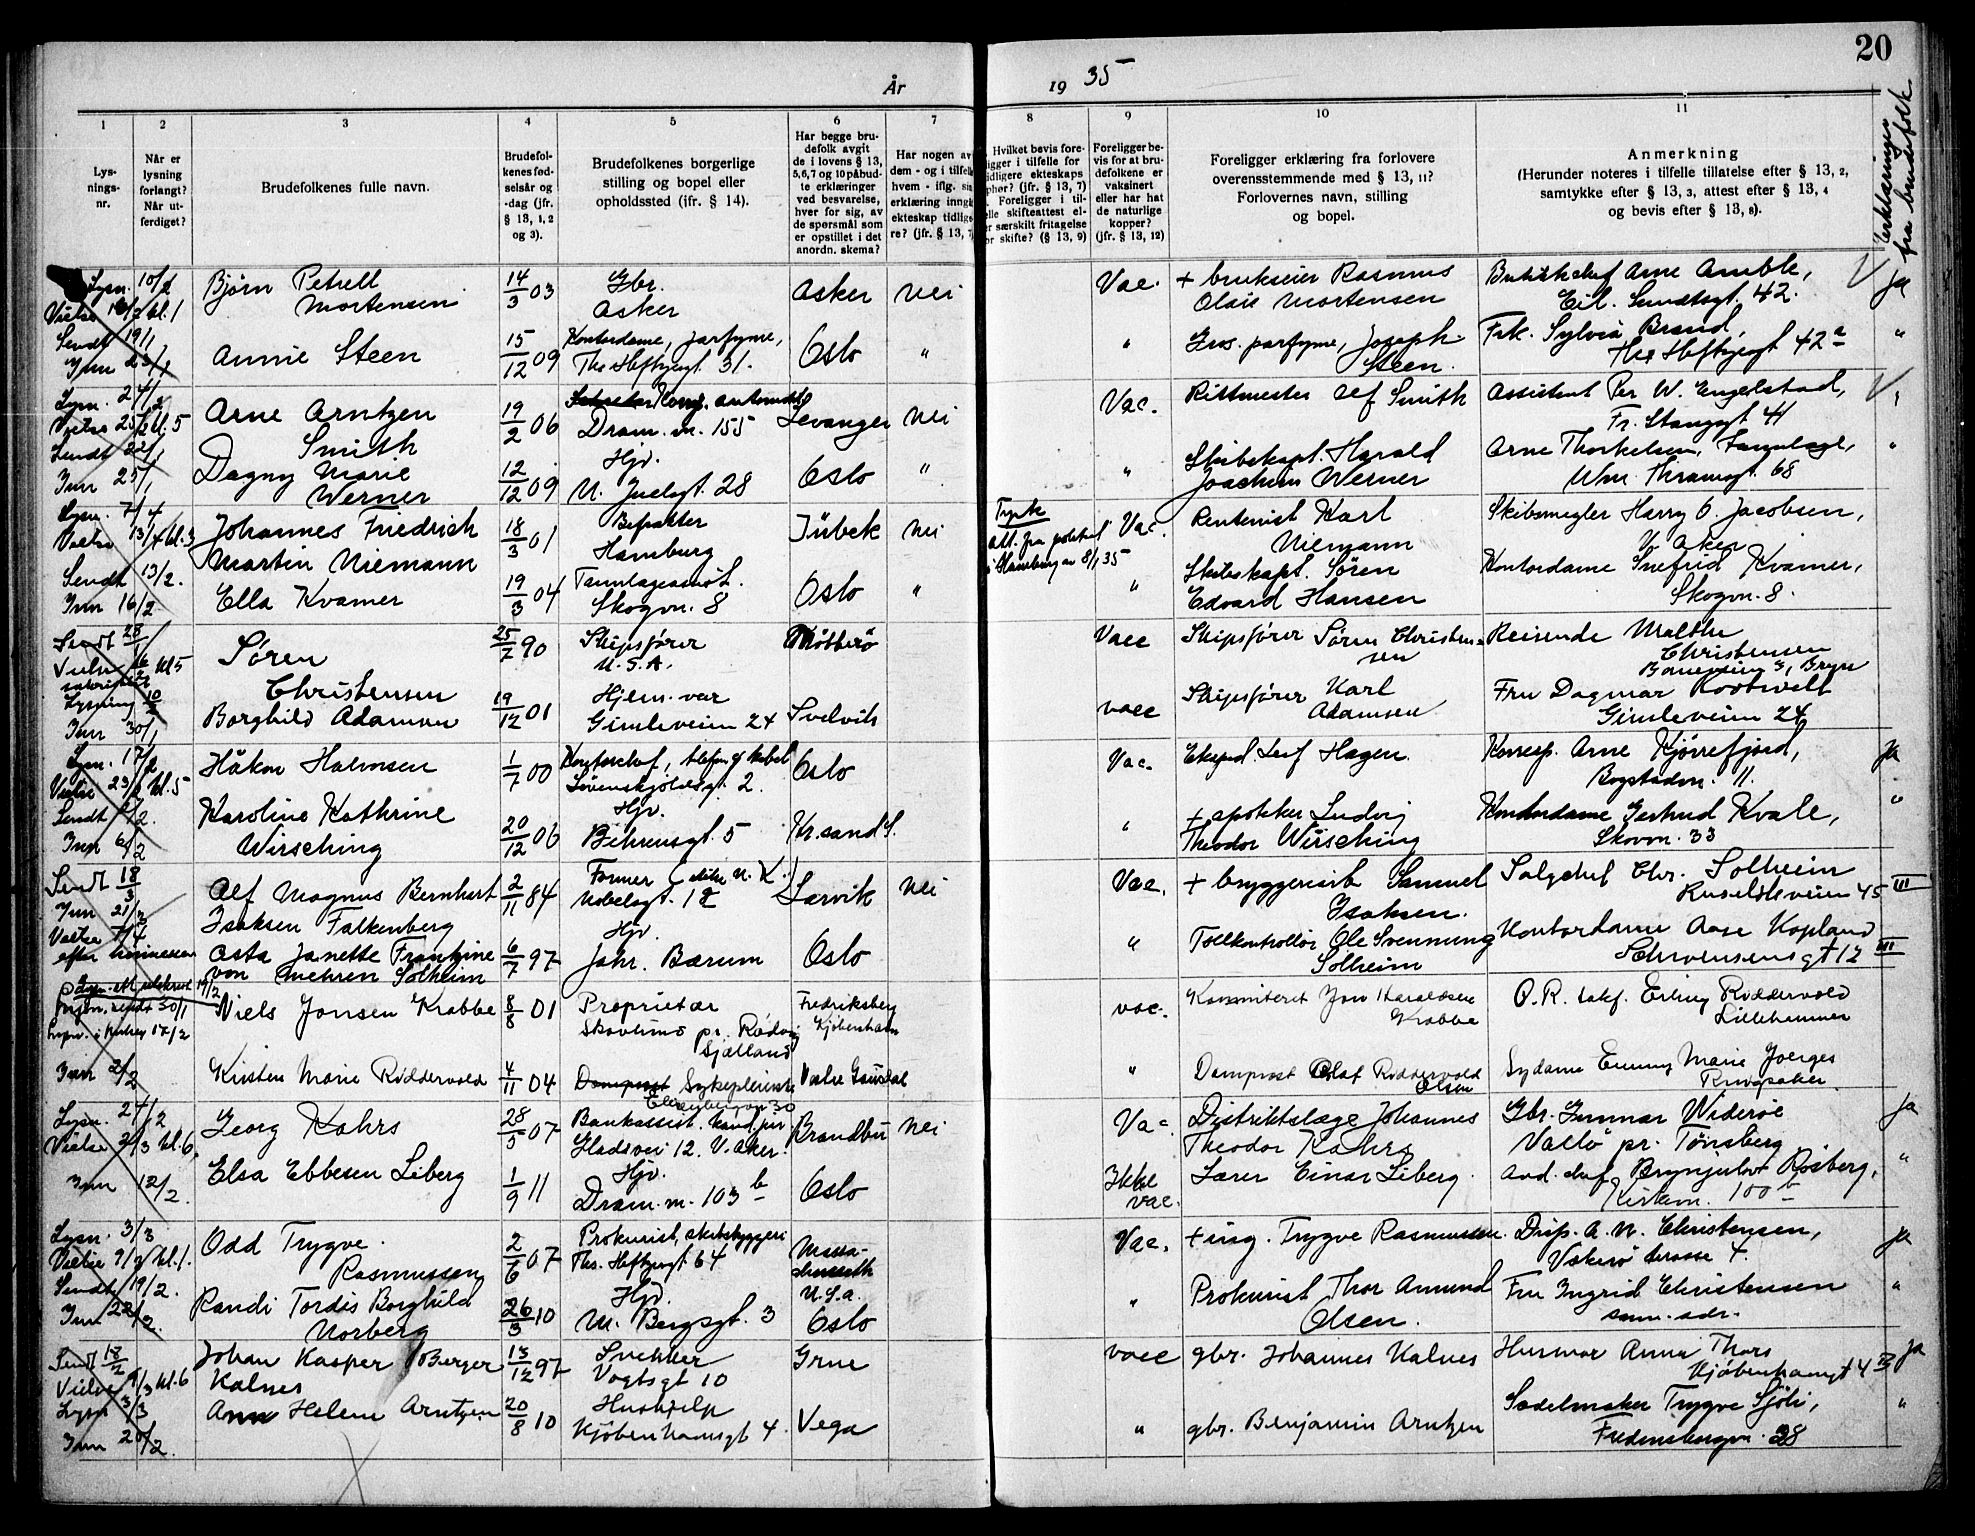 20
År
19 35
1
2
3
4
5
6
7
8
9
10
11
Lys-
nings-
nr.
Når er
lysning
forlangt?
Når ut-
ferdiget?
Brudefolkenes fulle navn.
Brudefol-
kenes fød-
selsår og
-dag (jfr.
§ 13, 1, 2
og 3).
Brudefolkenes borgerlige
stilling og bopel eller
opholdssted (ifr. § 14).
Har begge bru-
defolk avgit
de i lovens § 13,
5, 6, 7 og 10 påbud-
te erklæringer
ved besvarelse,
hver for sig, av
de spørsmål som
er opstillet i det
anordn. skema?
Har nogen av
dem - og i tilfelle
hvem - iflg. sin
erklæring inngå
ekteskap tidlige-
re? (jfr. § 13, 7)
Hvilket bevis fore-
ligger i tilfelle for
tidligere ekteskaps
ophør? (jfr. § 13, 7)
Foreligger i til-
felle skifteattest el-
er særskilt fritagelse
for skifte? (§ 13, 9)
Foreligger be-
vis for at bru-
defolkene er
vaksinert
eller har hat
de naturlige
kopper?
(jfr. § 13, 12)
Foreligger erklæring fra forlovere
overensstemmende med § 13, 11?
Forlovernes navn, stilling
og bopel.
Anmerkning
(Herunder noteres i tilfelle tillatelse efter § 13, 2,
samtykke efter § 13, 3, attest efter § 13, 4
og bevis efter § 13, 8).
Erklæringer
fra brudefolk
Lysn. 10/2
Bjørn Petrell
Mortensen
14/3 03
Gbr.
Asker
Asker
Nei
Vac.
+ brukseier Rasmus
Olai Mortensen
Butikkchef Arne Amble,
Eil. Sundtsgt. 42.
Ja
Sendt 19/1
Inn 23/1
Annie Steen
15/12 09
Kontordame, parfyme,
Ths Heftyesgt 31.
Oslo
"
"
Gros. parfyme, Joseph
Steen.
Frk. Sylvia Brand,
Ths Heftyesgt 42a
"
Lysn. 24/2
Vielse 25/2 kl. 5
Arne Arntzen
Smith
19/2 06
Dram. v. 155
Levanger
Nei
Vac.
Rittmester Alf Smith
Assistent Per W. Engelstad,
Fr. Stangsgt 41
Sendt 22/1
Inn 25/1
Dagny Marie
Werner
12/12 09
Hjv.
N. Juelsgt. 28
Oslo
"
"
Skibskapt. Harald
Joachim Werner
Arne Thorkelsen,
Wm. Thranesgt. 68
"
Lysn. 7/4
Vielse 13/4 kl. 3
Johannes Friedrich
Martin Niemann
18/3 01
Befrakter
Hamburg
Lübeck
Nei
Tysk
Vac.
Rentenist Karl
Niemann
Skibsmegler Harry O. Jacobsen,
V. Aker
Sendt 13/2.
Inn 16/2
Ella Kvamer
19/3 04
Tannlegeassist.
Skogvn. 8
Oslo
"
"
Skibskapt. Søren
Edvard Hansen
Kontordame Snefrid Kvamer,
Skogvn. 8.
Sendt 28/1
Søren
Christensen
25/7 90
Skipsfører
U.S.A.
Vacc
Skipsfører Søren Christen-
sen
Reisende Malthe
Christensen
Baneveien 3, Bryn
Inn 30/1
Borghild Adamsen
19/12 01
Hjem. vær
Gimleveien 24
Svelvik
vacc
Skipsfører Karl
Adamsen
Fru Dagmar
Gimleveien 24
Lysn. 17/2
Vielse 23/2 kl. 5
Håkon Halvorsen
1/7 00
Løvenskjoldsgt. 2.
Oslo
Vac.
Eksped. Leif Hagen.
Korresp. Arne Kjørrefjord,
Bogstadvn. 11.
Ja
Inn 6/2
Karoline Kathrine
Wirsching
20/12 06
Hjv.
Behrensgt. 5
Kr.sand S.
"
+ apoteker Ludvig
Theodor Wirsching
Kontordame Gertrud Kvale,
Skovvn. 33
"
Sendt 18/3
Inn 21/3
Vielse 7/4
Alf Magnus Bernhart
Isaksen Falkenberg
2/11 84
Nobelsgt. 18
Larvik
Nei
Vac.
+ bryggeriarb Samuel
Isaksen.
Salgschef Chr. Solheim
Ruseløkveien 45 III
Asta Janette Frantzine
von Mehren Solheim
6/7 97
Hjv.
Jahr. Bærum
Oslo
"
Tollkontrollør Ole Svenning
Solheim
Kontordame Aase Kopland
Schwensensgt 12 III
Niels Jonsen Krabbe
8/8 01
Proprietær
pr. Rødvig
Sjælland
Fredriksberg
Kjøbenhavn
vac.
Jon Haraldsen
Krabbe
O.R. sakf. Erling Riddervold
Lillehammer
Inn 2/2
Kirsten Marie Riddervold
4/11 04
Domprost Sykepleierske
Vestre Gausdal
"
Domprost Olaf Riddervold
Olsen
Sydame Emmy Marie Joerges
Ringsaker
Lysn. 24/2
Vielse 2/3 kl. 6
Georg Kahrs
28/5 07
Bankassist. kand. jur
Heldsvei 12 V. Aker.
Brandbu
Nei
Vac.
Distriktslæge Johannes
Theodor Kahrs
Gbr. Gunnar Widerøe
Vallø pr. Tønsberg
Ja
Inn 12/2.
Elsa Ebbesen Liberg
1/9 11
Hjv.
Dram. v. 103 b
Oslo
Ikke
vac.
Lærer Einar Liberg.
Avd. chef Brynjulv Rosberg,
Kirkevn. 100 b
"
Lysn. 3/3
Vielse 9/3 kl. 1.
Odd Trygve
Rasmussen
2/6 07
Prokurist, skibsbyggeri
Ths. Heftyesgt 64
Massa-
chusseth
U.S.A.
Vac.
+ ing. Trygve Rasmussen.
Disp. A. N. Christensen,
Vækerø terasse 4.
Ja
Sendt 19/2.
Inn 22/2.
Randi Tordis Borghild
Norberg
26/3 10
Hjv.
M. Bergsgt. 3
Oslo
"
Prokurist Thor Amund
Olsen.
Fru Ingrid Christensen
sam. adr.
"
Sendt 18/2
Vielse 9/3 kl. 6
Johan Kasper Berger
Kalnes
13/12 97
Snekker
Vogtsgt 10
Grue
vacc
gbr. Johannes Kalnes
Husmor Anna Thors
Kjøbenhavngt 4 IV
Ja
Lysn 3/3
Inn 20/2.
Ann Helene Arntzen
20/8 10
Hushjelp
Kjøbenhavnsgt 4.
Vega
"
gbr. Benjamin Arntzen
Sadelmaker Trygve Sjøli,
Fredensborgvn. 28
"